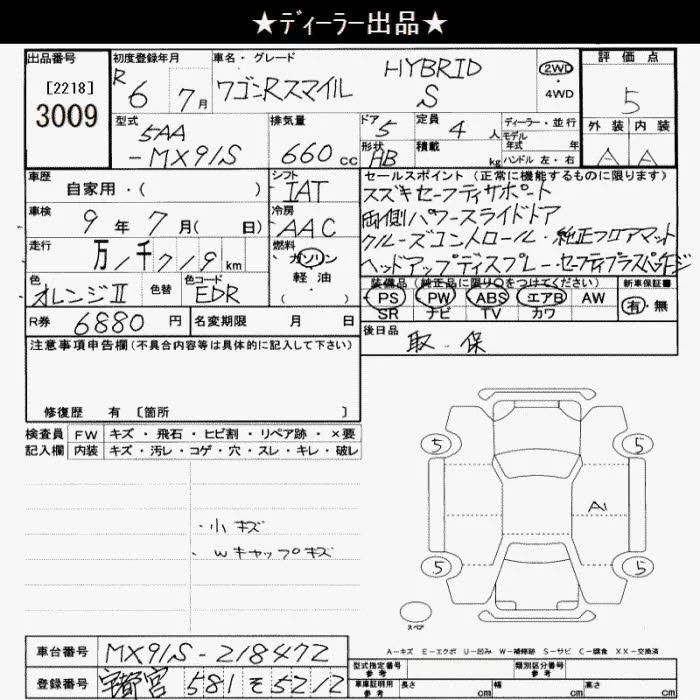 ★ディーラー出品★
出品番号
[2218]
3009
初度登録年月
R6 7月
車名・グレード
ワゴンRスマイル HYBRID S
2WD
・4WD
評価点
5
外装 内装
A A
型式
5AA
-MX91S
排気量
660 cc
ドア 5
形状 HB
定員 4 人
積載 kg
ディーラー・並行
モデル
年式 年
ハンドル 左・右
車歴
自家用・( )
車検
9年7月( 日)
走行
万/千7/9 km
色
オレンジII
色替
色コード
EDR
シフト
IAT
冷房
AAC
燃料
ガソリン
軽油
( )
セールスポイント(正常に機能するものに限ります)
スズキセーフティサポート
両側パワースライドドア
クルーズコントロール・純正フロアマット
ヘッドアップディスプレー・セーフティプラスパッケージ
装備品(純正品に限り○をつけてください)
PS PW ABS エアB AW
SR ナビ TV カワ
新車保証書
有・無
R券 6880円
名変期限 月 日
後日品
取・保
注意事項申告欄(不具合内容等は具体的に記入して下さい)
修復歴 有 〔箇所 〕
検査員 FW キズ・飛石・ヒビ割・リペア跡・×要
記入欄 内装 キズ・汚レ・コゲ・穴・スレ・キレ・破レ
・小キズ
・Wキャップキズ
5 5
A1
5 5
スペア
A-キズ E-エクボ U-凹み W-補修跡 S-サビ C-腐食 XX-交換済
車台番号 MX91S-218472
登録番号 宇都宮 581そ52/2
型式指定番号
参考
類別区分番号
参考
車庫証明用
参考
長さ cm 幅 cm 高さ cm